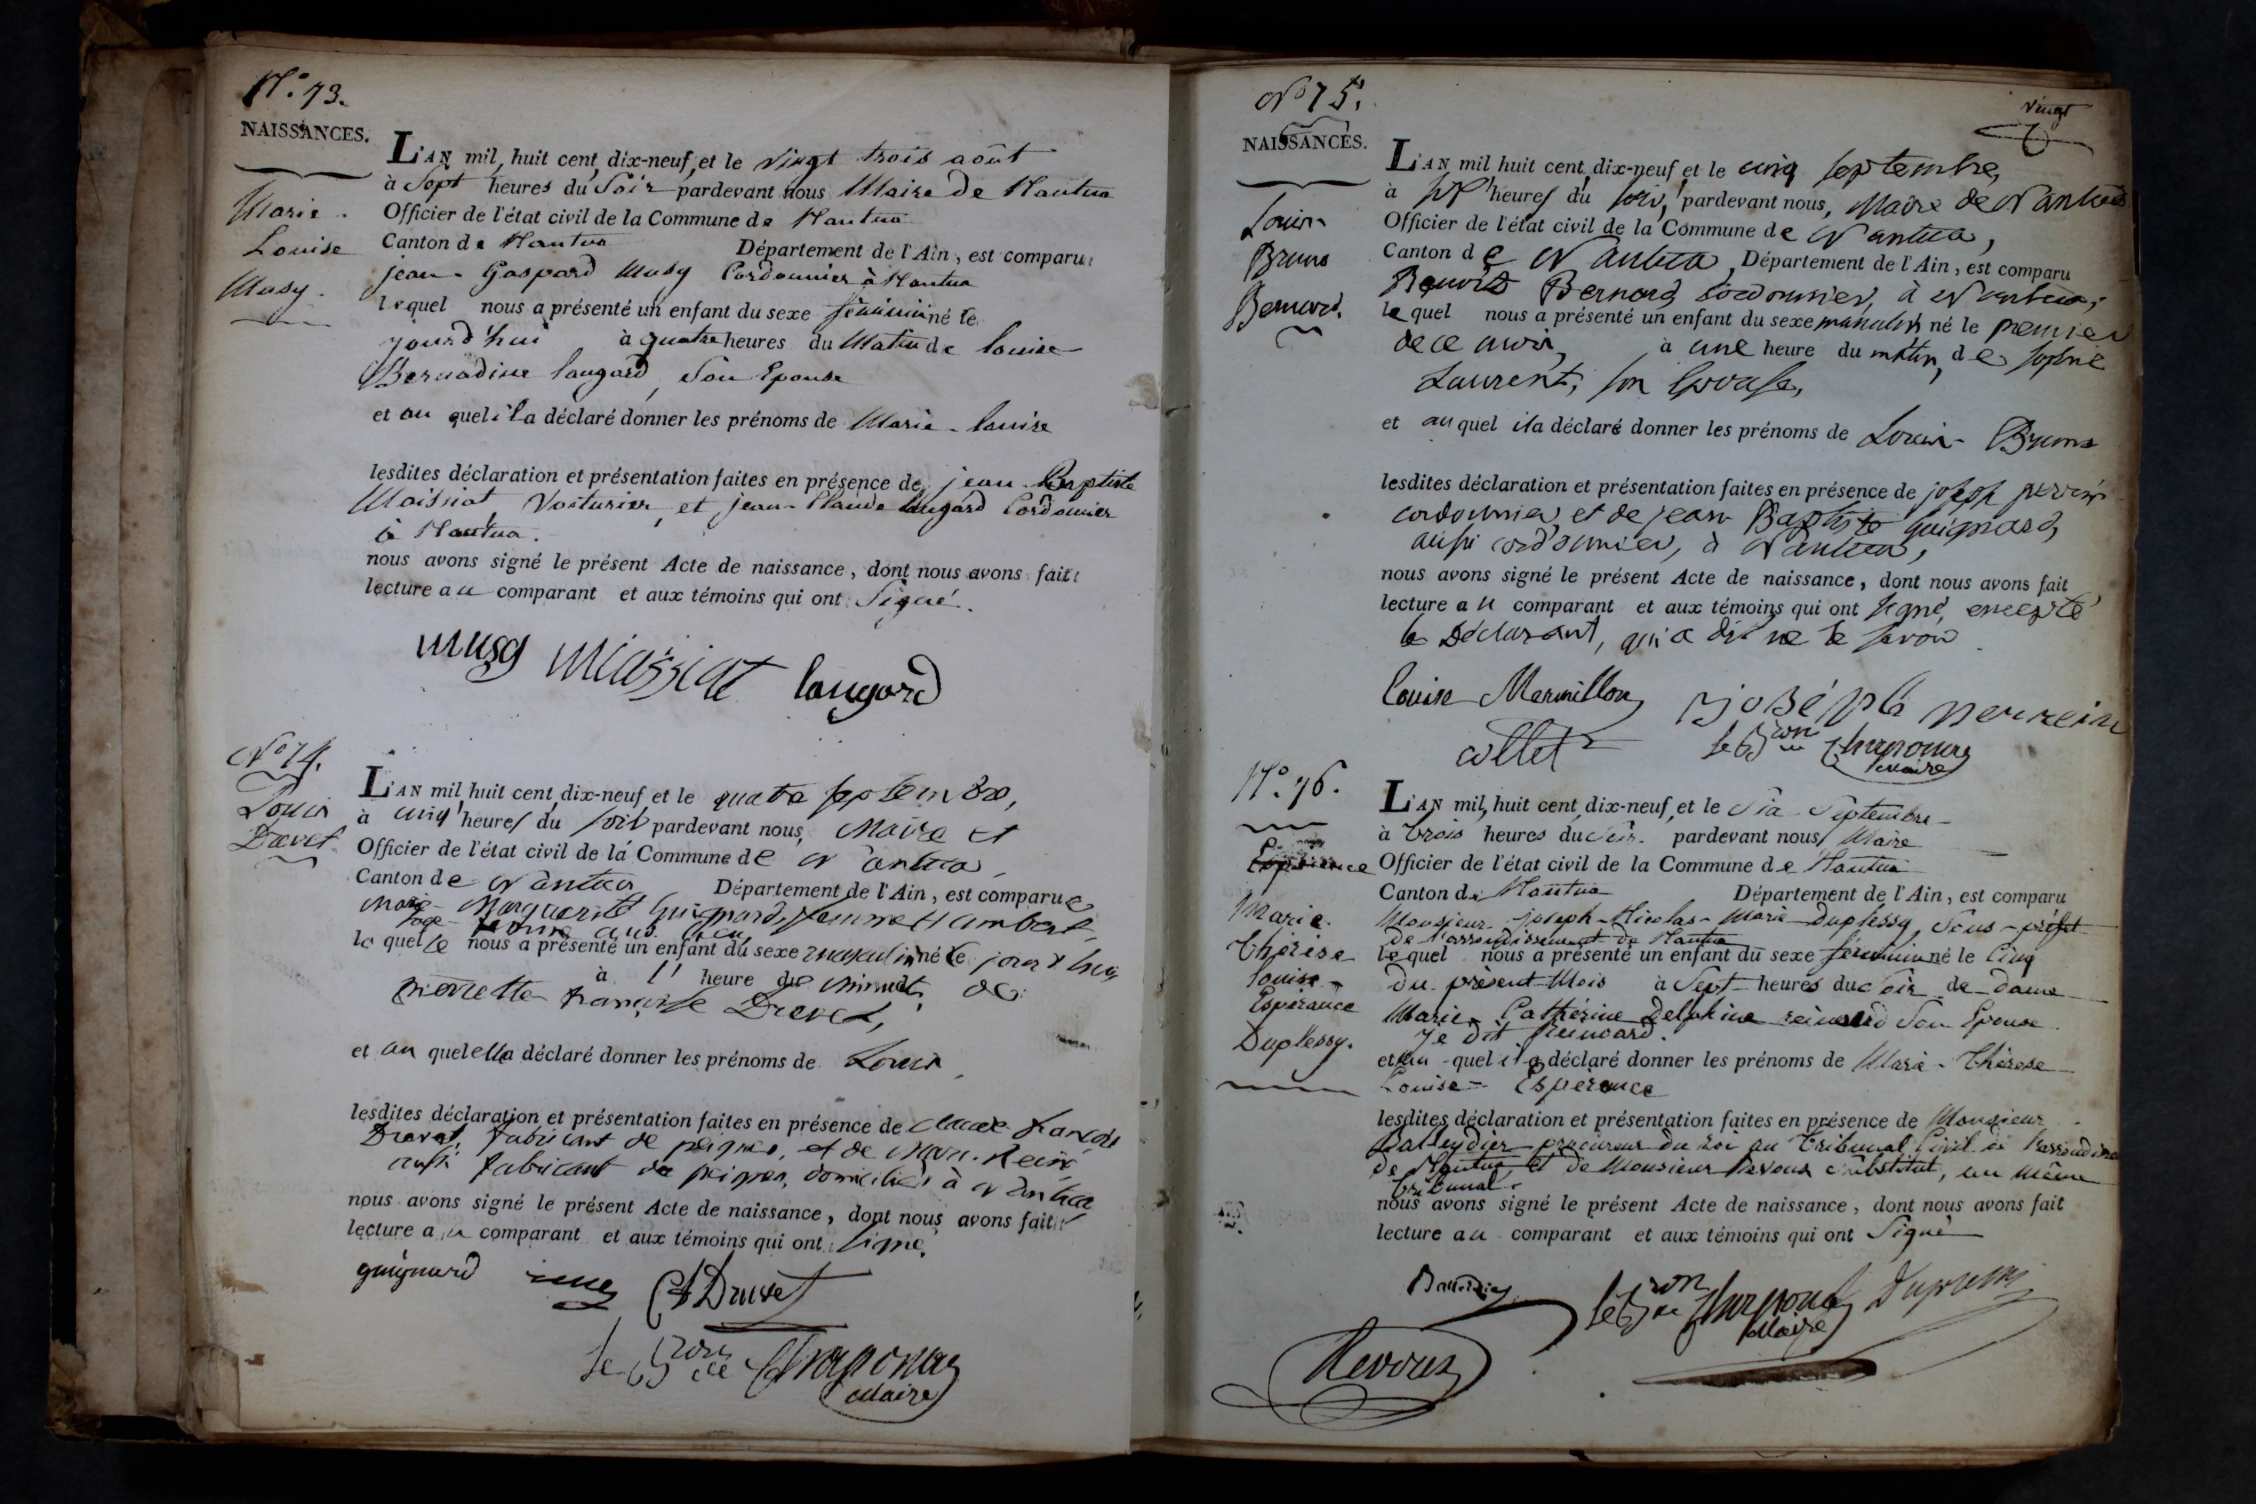 N.° 73.
NAISSANCES.
Marie
Louise
Musy.
L'AN mil huit cent dix-neuf et le vingt trois août
à Sept heures du Soir pardevant nous Maire de Nantua
Officier de l'état civil de la Commune de Nantua
Canton de Nantua Département de l'Ain, est comparu
jean-Gaspard Musy Cordonnier à Nantua
lequel nous a présenté un enfant du sexe féminin né le
jourd'hui à quatre heures du Matin de louise
Bernadine langard, Son Epouse
et au quel il a déclaré donner les prénoms de Marie-louise
lesdites déclaration et présentation faites en présence de jean Baptiste
Maissiat, Voiturier, et jean-Claude langard Cordonnier
à Nantua.
nous avons signé le présent Acte de naissance, dont nous avons fait
lecture au comparant et aux témoins qui ont Signé.
musy miassiat langard
N° 74.
Louis
Drevet
L'AN mil huit cent dix-neuf et le quatre septembre,
à cinq heures du soir pardevant nous, Maire et
Officier de l'état civil de la Commune de Nantua
Canton de Nantua Département de l'Ain, est comparue
Marie Marguerite Guignard, femme humbert,
sage femme
le quelle nous a présenté un enfant du sexe masculin né le jourd'hui
à 1 heure de minuit, de
pierrette françoise Drevet,
et au quel elle a déclaré donner les prénoms de Louis,
lesdites déclaration et présentation faites en présence de claude françois
Drevet, fabricant de peignes, et de René
aussi fabricant de peignes, domiciliés à Nantua
nous avons signé le présent Acte de naissance, dont nous avons fait
lecture au comparant et aux témoins qui ont signé.
guignard Drevet
le Bon de Maire
N° 75.
vingt
NAISSANCES.
Louis
Bruno
Bernard.
L'AN mil huit cent dix-neuf et le cinq septembre,
à sept heures du soir, pardevant nous, Maire de Nantua
Officier de l'état civil de la Commune de Nantua,
Canton de Nantua, Département de l'Ain, est comparu
Benoît Bernard cordonnier, à Nantua,
le quel nous a présenté un enfant du sexe masculin né le premier
de ce mois, à une heure du matin, de sophie
Laurent, son épouse,
et au quel il a déclaré donner les prénoms de Louis-Bruno
lesdites déclaration et présentation faites en présence de joseph perrein
cordonnier, et de jean Baptiste guignard,
aussi cordonnier, à Nantua,
nous avons signé le présent Acte de naissance, dont nous avons fait
lecture au comparant et aux témoins qui ont signé, excepté
le Déclarant, qui a dit ne le savoir
louise Mermillon joséph perrein
collet le Bon Maire
N.° 76.
Espérance
Marie
Thérèse
louise
Espérance
Duplessy.
L'AN mil huit cent dix-neuf et le Six Septembre
à trois heures du Soir pardevant nous Maire
Officier de l'état civil de la Commune de Nantua
Canton de Nantua Département de l'Ain, est comparu
Monsieur joseph-Nicolas-Marie Duplessy, Sous-préfet
de l'arrondissement de Nantua
lequel nous a présenté un enfant du sexe féminin né le Cinq
du présent Mois à Sept heures du Soir de dame
Marie Catherine Delphine Son Epouse
je dit Reinoard.
et au quel il a déclaré donner les prénoms de Marie-Thérèse
Louise-Espérance
lesdites déclaration et présentation faites en présence de Monsieur
Balleydier procureur du roi au tribunal Civil de
de Nantua, et de Monsieur Revoux Substitut, au même
tribunal.
nous avons signé le présent Acte de naissance, dont nous avons fait
lecture au comparant et aux témoins qui ont Signé
Balleydier le Bon Maire Duplessy
Revoux